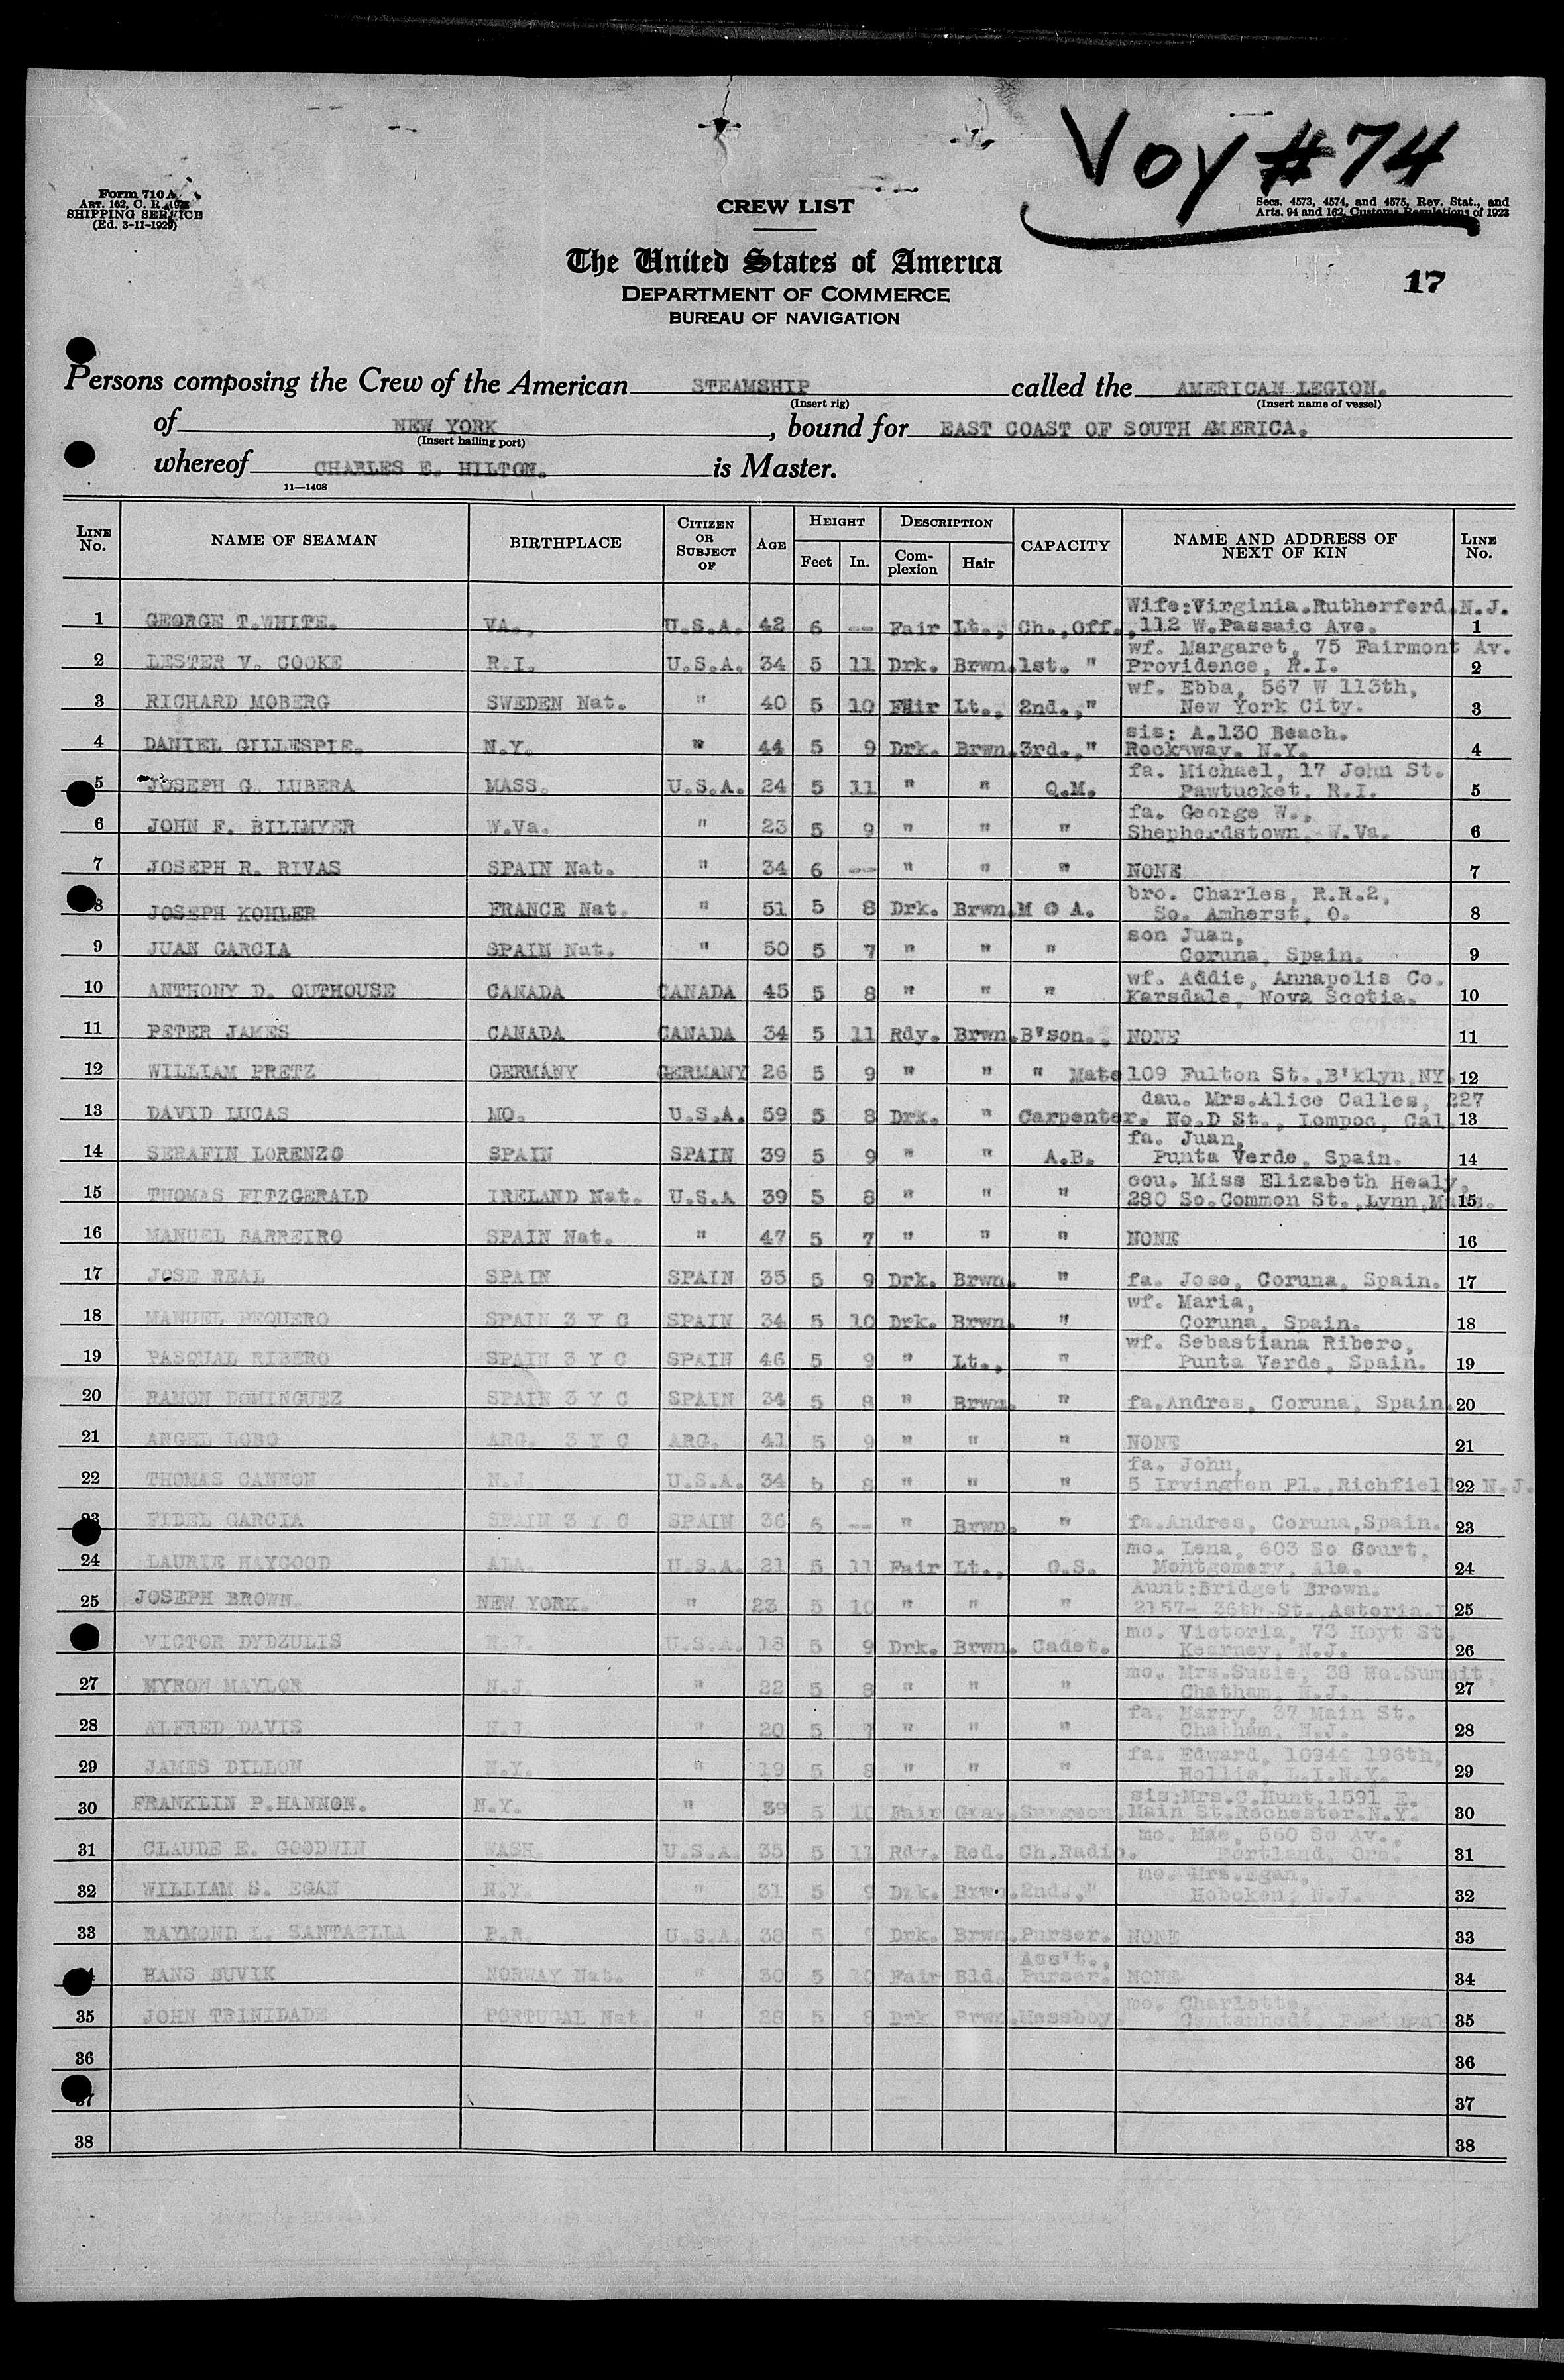 Voy #74
Form 710A
ART. 162, C. R. 1923
SHIPPING SERVICE
(Ed. 3-11-1929)
Secs. 4573, 4574, and 4575, Rev. Stat., and
Arts. 94 and 162, Customs Regulations of 1923
CREW LIST
The United States of America
DEPARTMENT OF COMMERCE
BUREAU OF NAVIGATION
17
Persons composing the Crew of the American STEAMSHIP called the AMERICAN LEGION.
(Insert rig) (Insert name of vessel)
of NEW YORK, bound for EAST COAST OF SOUTH AMERICA.
(Insert hailing port)
whereof CHARLES E. HILTON. is Master.
11—1408
LINE No. NAME OF SEAMAN BIRTHPLACE CITIZEN OR SUBJECT OF AGE HEIGHT Feet In. DESCRIPTION Complexion Hair CAPACITY NAME AND ADDRESS OF NEXT OF KIN LINE No.
Wife:Virginia.Rutherferd.N.J.
1 GEORGE T.WHITE. VA., U.S.A. 42 6 -- Fair Lt., Ch.,Off. ,112 W.Passaic Ave. 1
wf. Margaret, 75 Fairmont Av.
2 LESTER V. COOKE R.I. U.S.A. 34 5 11 Drk. Brwn. 1st. " Providence, R.I. 2
wf. Ebba, 567 W 113th,
3 RICHARD MOBERG SWEDEN Nat. " 40 5 10 Fair Lt., 2nd.," New York City. 3
sis: A.130 Beach.
4 DANIEL GILLESPIE. N.Y. " 44 5 9 Drk. Brwn. 3rd.," Rockaway. N.Y. 4
fa. Michael, 17 John St.
5 JOSEPH G. LUBERA MASS. U.S.A. 24 5 11 " " Q.M. Pawtucket, R.I. 5
fa. George W.,
6 JOHN F. BILIMYER W.Va. " 23 5 9 " " " Shepherdstown, W.Va. 6
7 JOSEPH R. RIVAS SPAIN Nat. " 34 6 -- " " " NONE 7
bro. Charles, R.R.2,
8 JOSEPH KOHLER FRANCE Nat. " 51 5 8 Drk. Brwn. M @ A. So. Amherst, O. 8
son Juan,
9 JUAN GARCIA SPAIN Nat. " 50 5 7 " " " Coruna, Spain. 9
wf. Addie, Annapolis Co.
10 ANTHONY D. OUTHOUSE CANADA CANADA 45 5 8 " " " Karsdale, Nova Scotia. 10
11 PETER JAMES CANADA CANADA 34 5 11 Rdy. Brwn. B'son. NONE 11
12 WILLIAM PRETZ GERMANY GERMANY 26 5 9 " " " Mate 109 Fulton St.,B'klyn,NY. 12
dau. Mrs.Alice Calles, 227
13 DAVID LUCAS MO. U.S.A. 59 5 8 Drk. " Carpenter. No.D St., Lompoc, Cal 13
fa. Juan,
14 SERAFIN LORENZO SPAIN SPAIN 39 5 9 " " A.B. Punta Verde, Spain. 14
cou. Miss Elizabeth Healy,
15 THOMAS FITZGERALD IRELAND Nat. U.S.A 39 5 8 " " " 280 So.Common St.,Lynn,Mass. 15
16 MANUEL BARREIRO SPAIN Nat. " 47 5 7 " " " NONE 16
17 JOSE REAL SPAIN SPAIN 35 5 9 Drk. Brwn. " fa. Jose, Coruna, Spain. 17
wf. Maria,
18 MANUEL PEQUERO SPAIN 3 Y C SPAIN 34 5 10 Drk. Brwn. " Coruna, Spain. 18
wf. Sebastiana Ribero,
19 PASQUAL RIBERO SPAIN 3 Y C SPAIN 46 5 9 " Lt., " Punta Verde, Spain. 19
20 RAMON DOMINGUEZ SPAIN 3 Y C SPAIN 34 5 8 " Brwn. " fa.Andres, Coruna, Spain. 20
21 ANGEL LOBO ARG. 3 Y C ARG. 41 5 9 " " " NONE 21
fa. John,
22 THOMAS CANNON N.J. U.S.A. 34 5 8 " " " 5 Irvington Pl.,Richfield, N.J. 22
23 FIDEL GARCIA SPAIN 3 Y C SPAIN 36 6 -- " Brwn. " fa.Andres, Coruna,Spain. 23
mo. Lena, 603 So Court,
24 LAURIE HAYGOOD ALA. U.S.A. 21 5 11 Fair Lt., O.S. Montgomery, Ala. 24
Aunt:Bridget Brown.
25 JOSEPH BROWN. NEW YORK. " 23 5 10 " " " 2157- 36th St. Astoria. 25
mo. Victoria, 73 Hoyt St.
VICTOR DYDZULIS N.J. U.S.A. 18 5 9 Drk. Brwn. Cadet. Kearney, N.J. 26
mo. Mrs.Susie, 38 No.Summit
27 MYRON MAYLOR N.J. " 22 5 8 " " " Chatham, N.J. 27
fa. Harry, 37 Main St.
28 ALFRED DAVIS N.J. " 20 5 7 " " " Chatham, N.J. 28
fa. Edward, 10944 196th,
29 JAMES DILLON N.Y. " 19 5 8 " " " Hollis, L.I.N.Y. 29
sis:Mrs.C.Hunt.1591 E.
30 FRANKLIN P.HANNON. N.Y. " 39 5 10 Fair Gray. Surgeon. Main St.Rochester.N.Y. 30
mo. Mae, 660 So Av.,
31 CLAUDE E. GOODWIN WASH. U.S.A. 35 5 11 Rdy. Red. Ch.Radio. Portland, Ore. 31
mo. Mrs.Egan,
32 WILLIAM S. EGAN N.Y. " 31 5 9 Drk. Brwn. 2nd.," Hoboken, N.J. 32
33 RAYMOND L. SANTAELLA P.R. U.S.A. 38 5 Drk. Brwn. Purser. NONE 33
Ass't.,
HANS BUVIK NORWAY Nat. " 30 5 10 Fair Bld. Purser. NONE 34
mo. Charlotte,
35 JOHN TRINIDADE PORTUGAL Nat " 28 5 8 Drk Brwn. Messboy. Cantanhede, Portugal 35
36 36
37 37
38 38